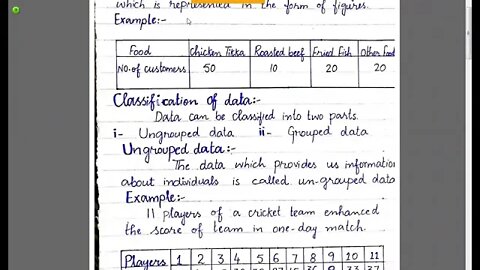 which is represented in the form of figures.
Example:-
Food Chicken Tikka Roasted beef Fried Fish Other food
No. of customers 50 10 20 20
Classification of data:-
Data can be classified into two parts.
i- Ungrouped data ii- Grouped data
Ungrouped data:-
The data which provides us information
about individuals is called un-grouped data
Example:-
11 players of a cricket team enhanced
the score of team in one-day match.
Players 1 2 3 4 5 6 7 8 9 10 11